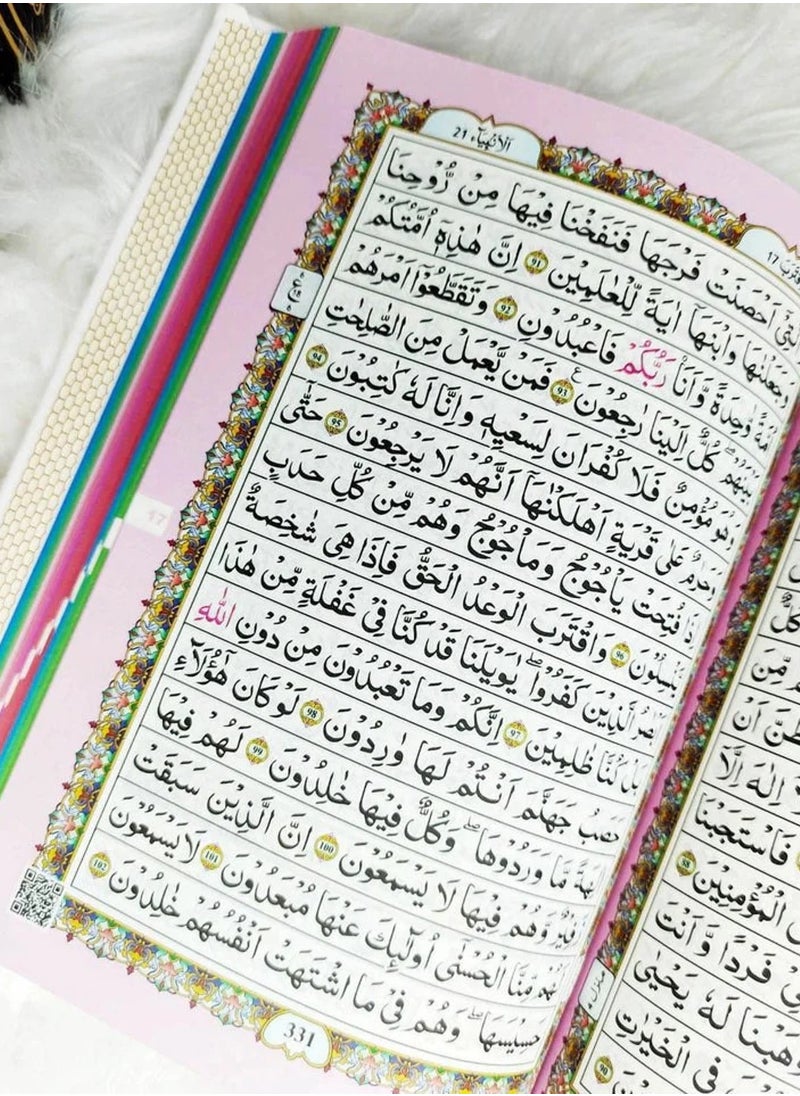 اَلْاَنْۢبِيَآء 21
17
اَحْصَنَتْ فَرْجَهَا فَنَفَخْنَا فِيْهَا مِنْ رُّوْحِنَا
وَجَعَلْنٰهَا وَابْنَهَآ اٰيَةً لِّلْعٰلَمِيْنَ 91 اِنَّ هٰذِهٖٓ اُمَّتُكُمْ
اُمَّةً وَّاحِدَةً وَّاَنَا رَبُّكُمْ فَاعْبُدُوْنِ 92 وَتَقَطَّعُوْٓا اَمْرَهُمْ
بَيْنَهُمْ كُلٌّ اِلَيْنَا رٰجِعُوْنَ 93 فَمَنْ يَّعْمَلْ مِنَ الصّٰلِحٰتِ
وَهُوَ مُؤْمِنٌ فَلَا كُفْرَانَ لِسَعْيِهٖ وَاِنَّا لَهٗ كٰتِبُوْنَ 94
وَحَرٰمٌ عَلٰى قَرْيَةٍ اَهْلَكْنٰهَآ اَنَّهُمْ لَا يَرْجِعُوْنَ 95 حَتّٰىٓ
اِذَا فُتِحَتْ يَاْجُوْجُ وَمَاْجُوْجُ وَهُمْ مِّنْ كُلِّ حَدَبٍ
يَّنْسِلُوْنَ 96 وَاقْتَرَبَ الْوَعْدُ الْحَقُّ فَاِذَا هِىَ شَاخِصَةٌ
الَّذِيْنَ كَفَرُوْا يٰوَيْلَنَا قَدْ كُنَّا فِىْ غَفْلَةٍ مِّنْ هٰذَا
بَلْ كُنَّا ظٰلِمِيْنَ 97 اِنَّكُمْ وَمَا تَعْبُدُوْنَ مِنْ دُوْنِ اللّٰهِ
حَصَبُ جَهَنَّمَ اَنْتُمْ لَهَا وٰرِدُوْنَ 98 لَوْ كَانَ هٰٓؤُلَآءِ
اٰلِهَةً مَّا وَرَدُوْهَا وَكُلٌّ فِيْهَا خٰلِدُوْنَ 99 لَهُمْ فِيْهَا
زَفِيْرٌ وَّهُمْ فِيْهَا لَا يَسْمَعُوْنَ 100 اِنَّ الَّذِيْنَ سَبَقَتْ
لَهُمْ مِّنَّا الْحُسْنٰٓى اُولٰٓئِكَ عَنْهَا مُبْعَدُوْنَ 101 لَا يَسْمَعُوْنَ
حَسِيْسَهَا وَهُمْ فِىْ مَا اشْتَهَتْ اَنْفُسُهُمْ خٰلِدُوْنَ 102
331
17
كُلٌّ
مِّنَ
اَنْ
اِلٰهَ اِلَّآ
فَاسْتَجَبْنَا
الْمُؤْمِنِيْنَ 88
فَرْدًا وَّاَنْتَ
لَهٗ يَحْيٰى
فِى الْخَيْرٰتِ
90